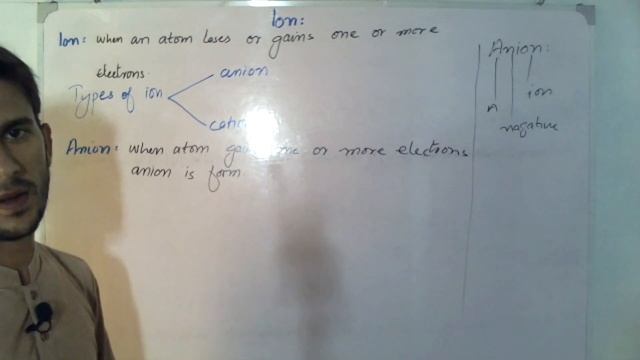 Ion:
Ion: when an atom loses or gains one or more
electrons.
Types of ion
anion
Anion: when atom or more electrons
anion is form
Anion:
n
ion
negative